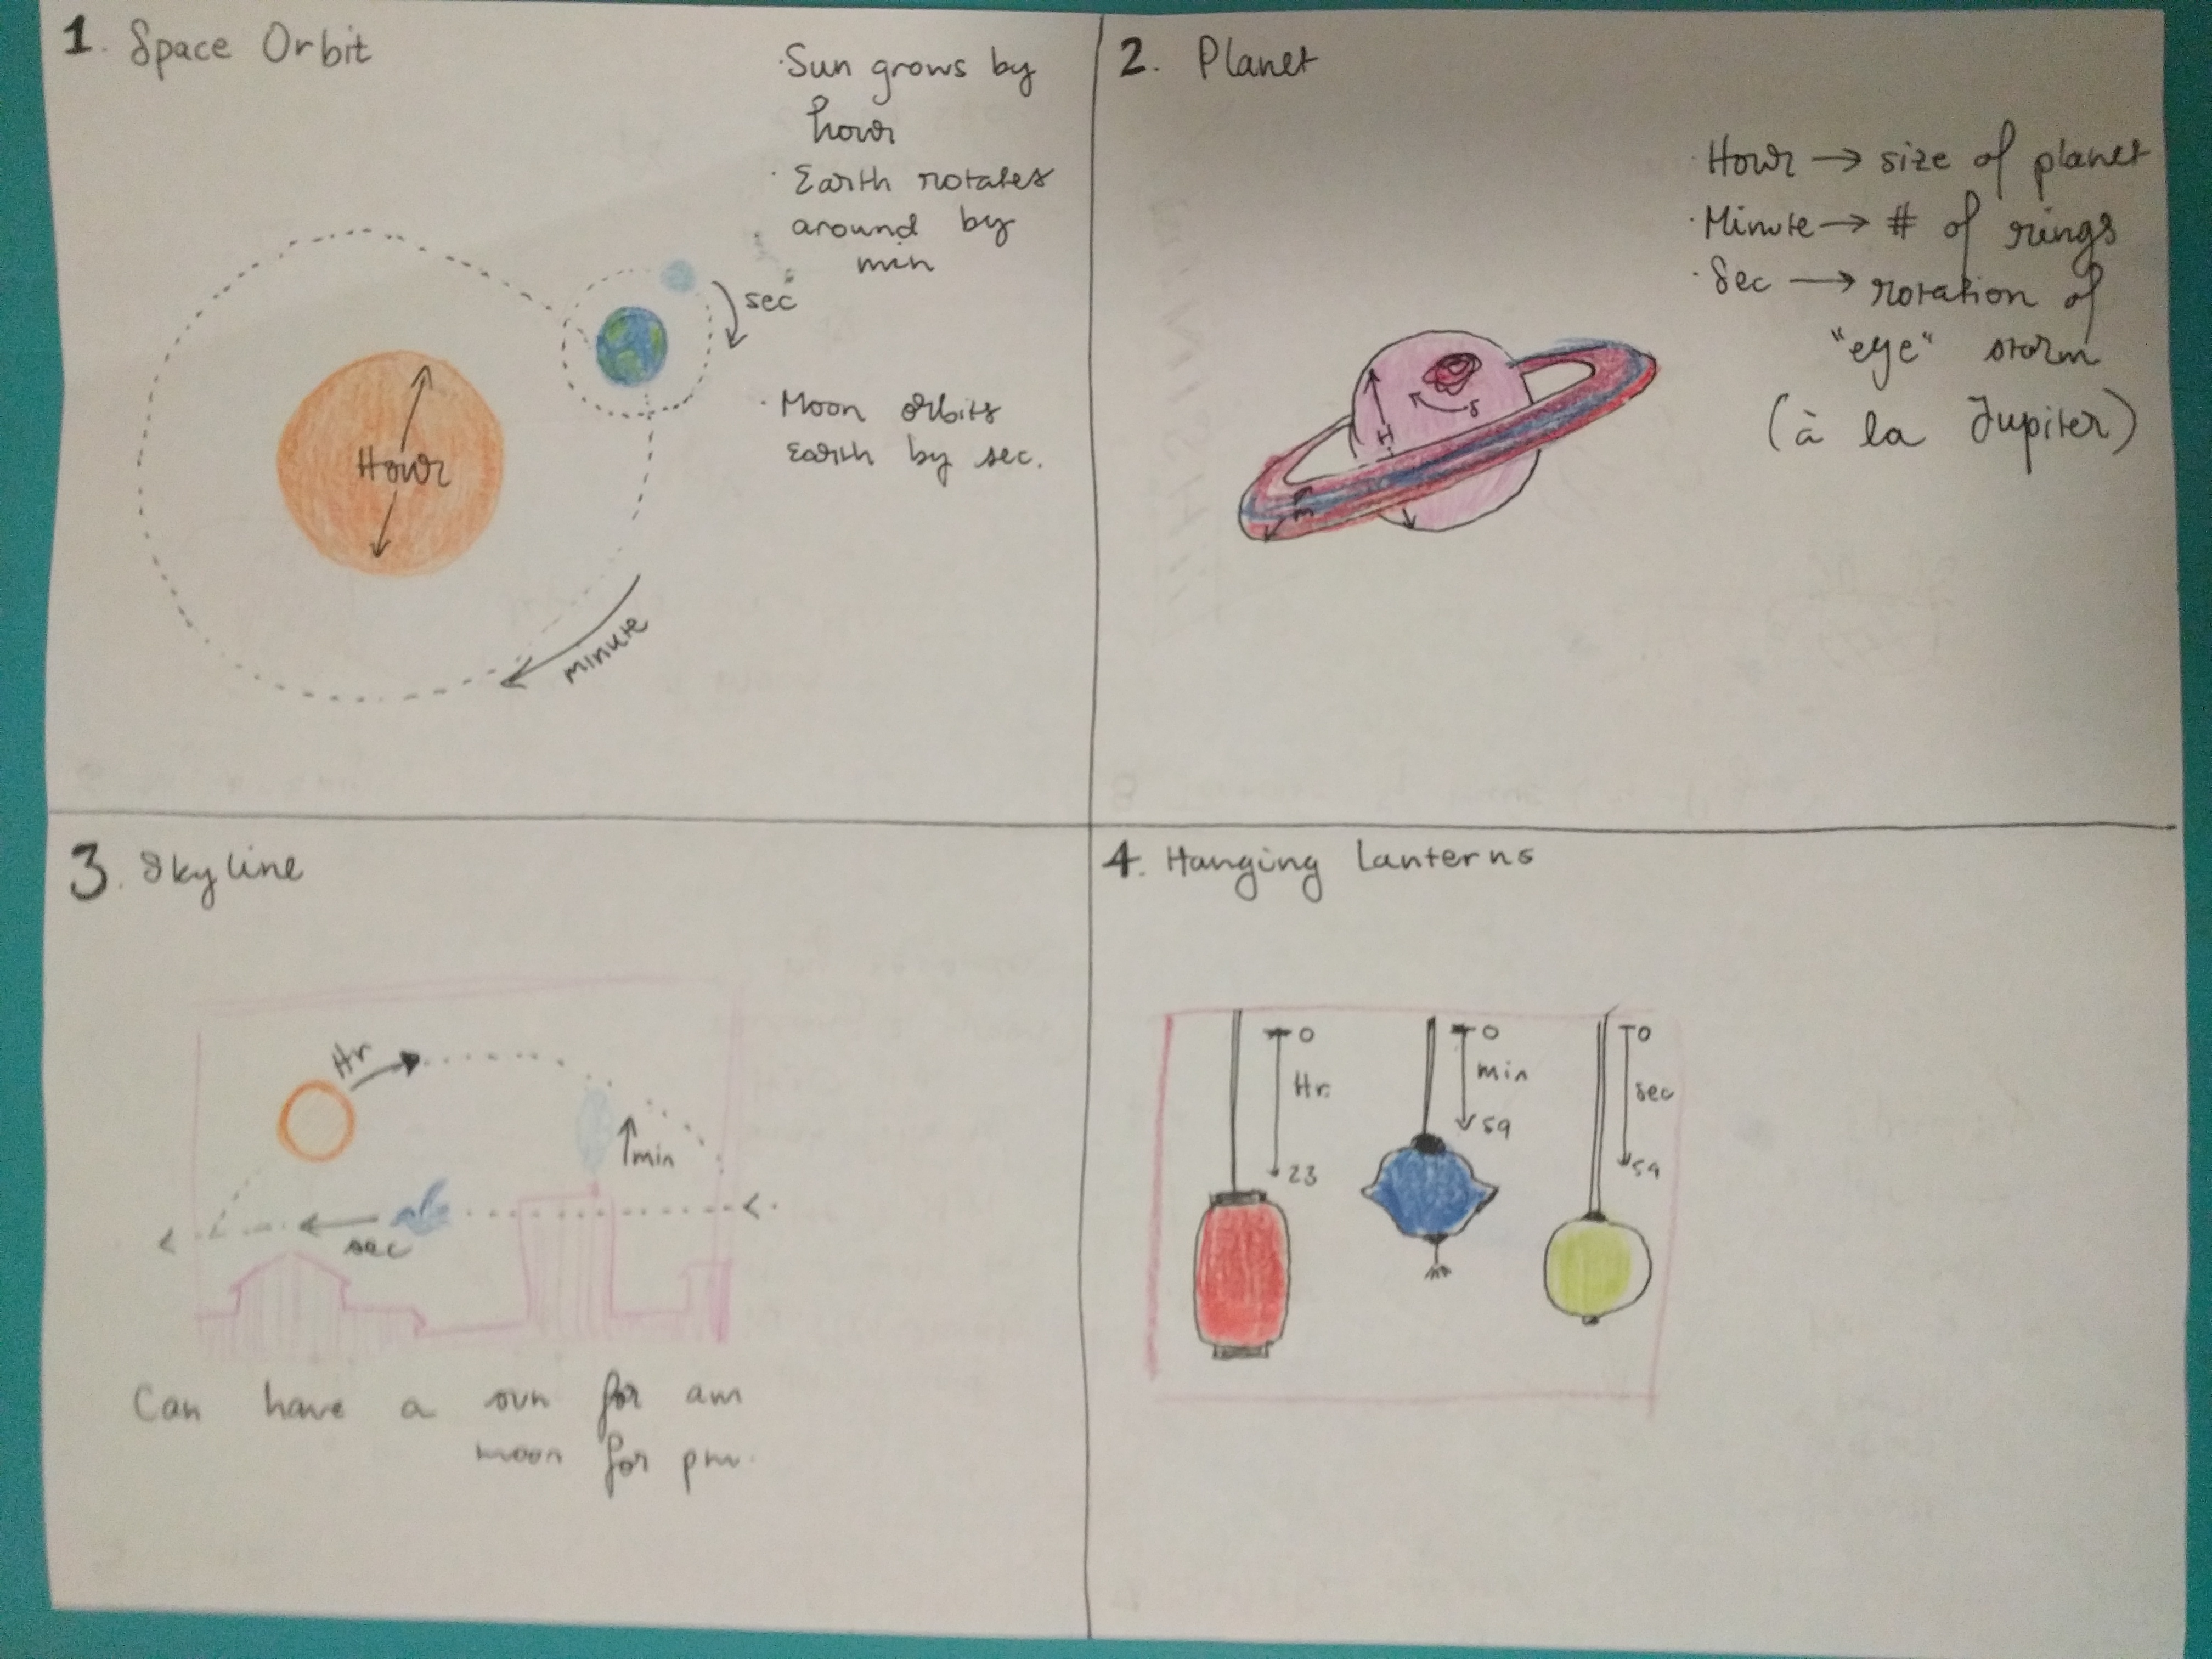 1. Space Orbit
· Sun grows by
hour
· Earth rotates
around by
min
sec
Hour
· Moon orbits
Earth by sec.
minute
2. Planet
· Hour → size of planet
· Minute → # of rings
· Sec → rotation of
"eye" storm
(à la Jupiter)
s
H
m
3. Skyline
Hr
min
sec
Can have a sun for am
moon for pm.
4. Hanging Lanterns
0
Hr.
23
0
min
59
0
sec
59